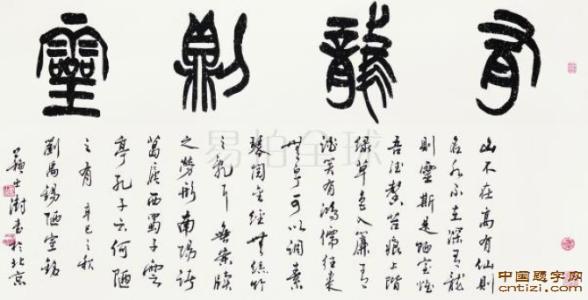 有龍則靈
山不在高有仙則
名水不在深有龍
則靈斯是陋室惟
吾德馨苔痕上階
綠草色入簾青
談笑有鴻儒往來
無白丁可以調素
琴閱金經無絲竹
之亂耳無案牘
之勞形南陽諸
葛廬西蜀子雲
亭孔子云何陋
之有 辛巳之秋
劉禹錫陋室銘
蘇士澍書於北京
易拍全球
中国题字网
cntizi.com